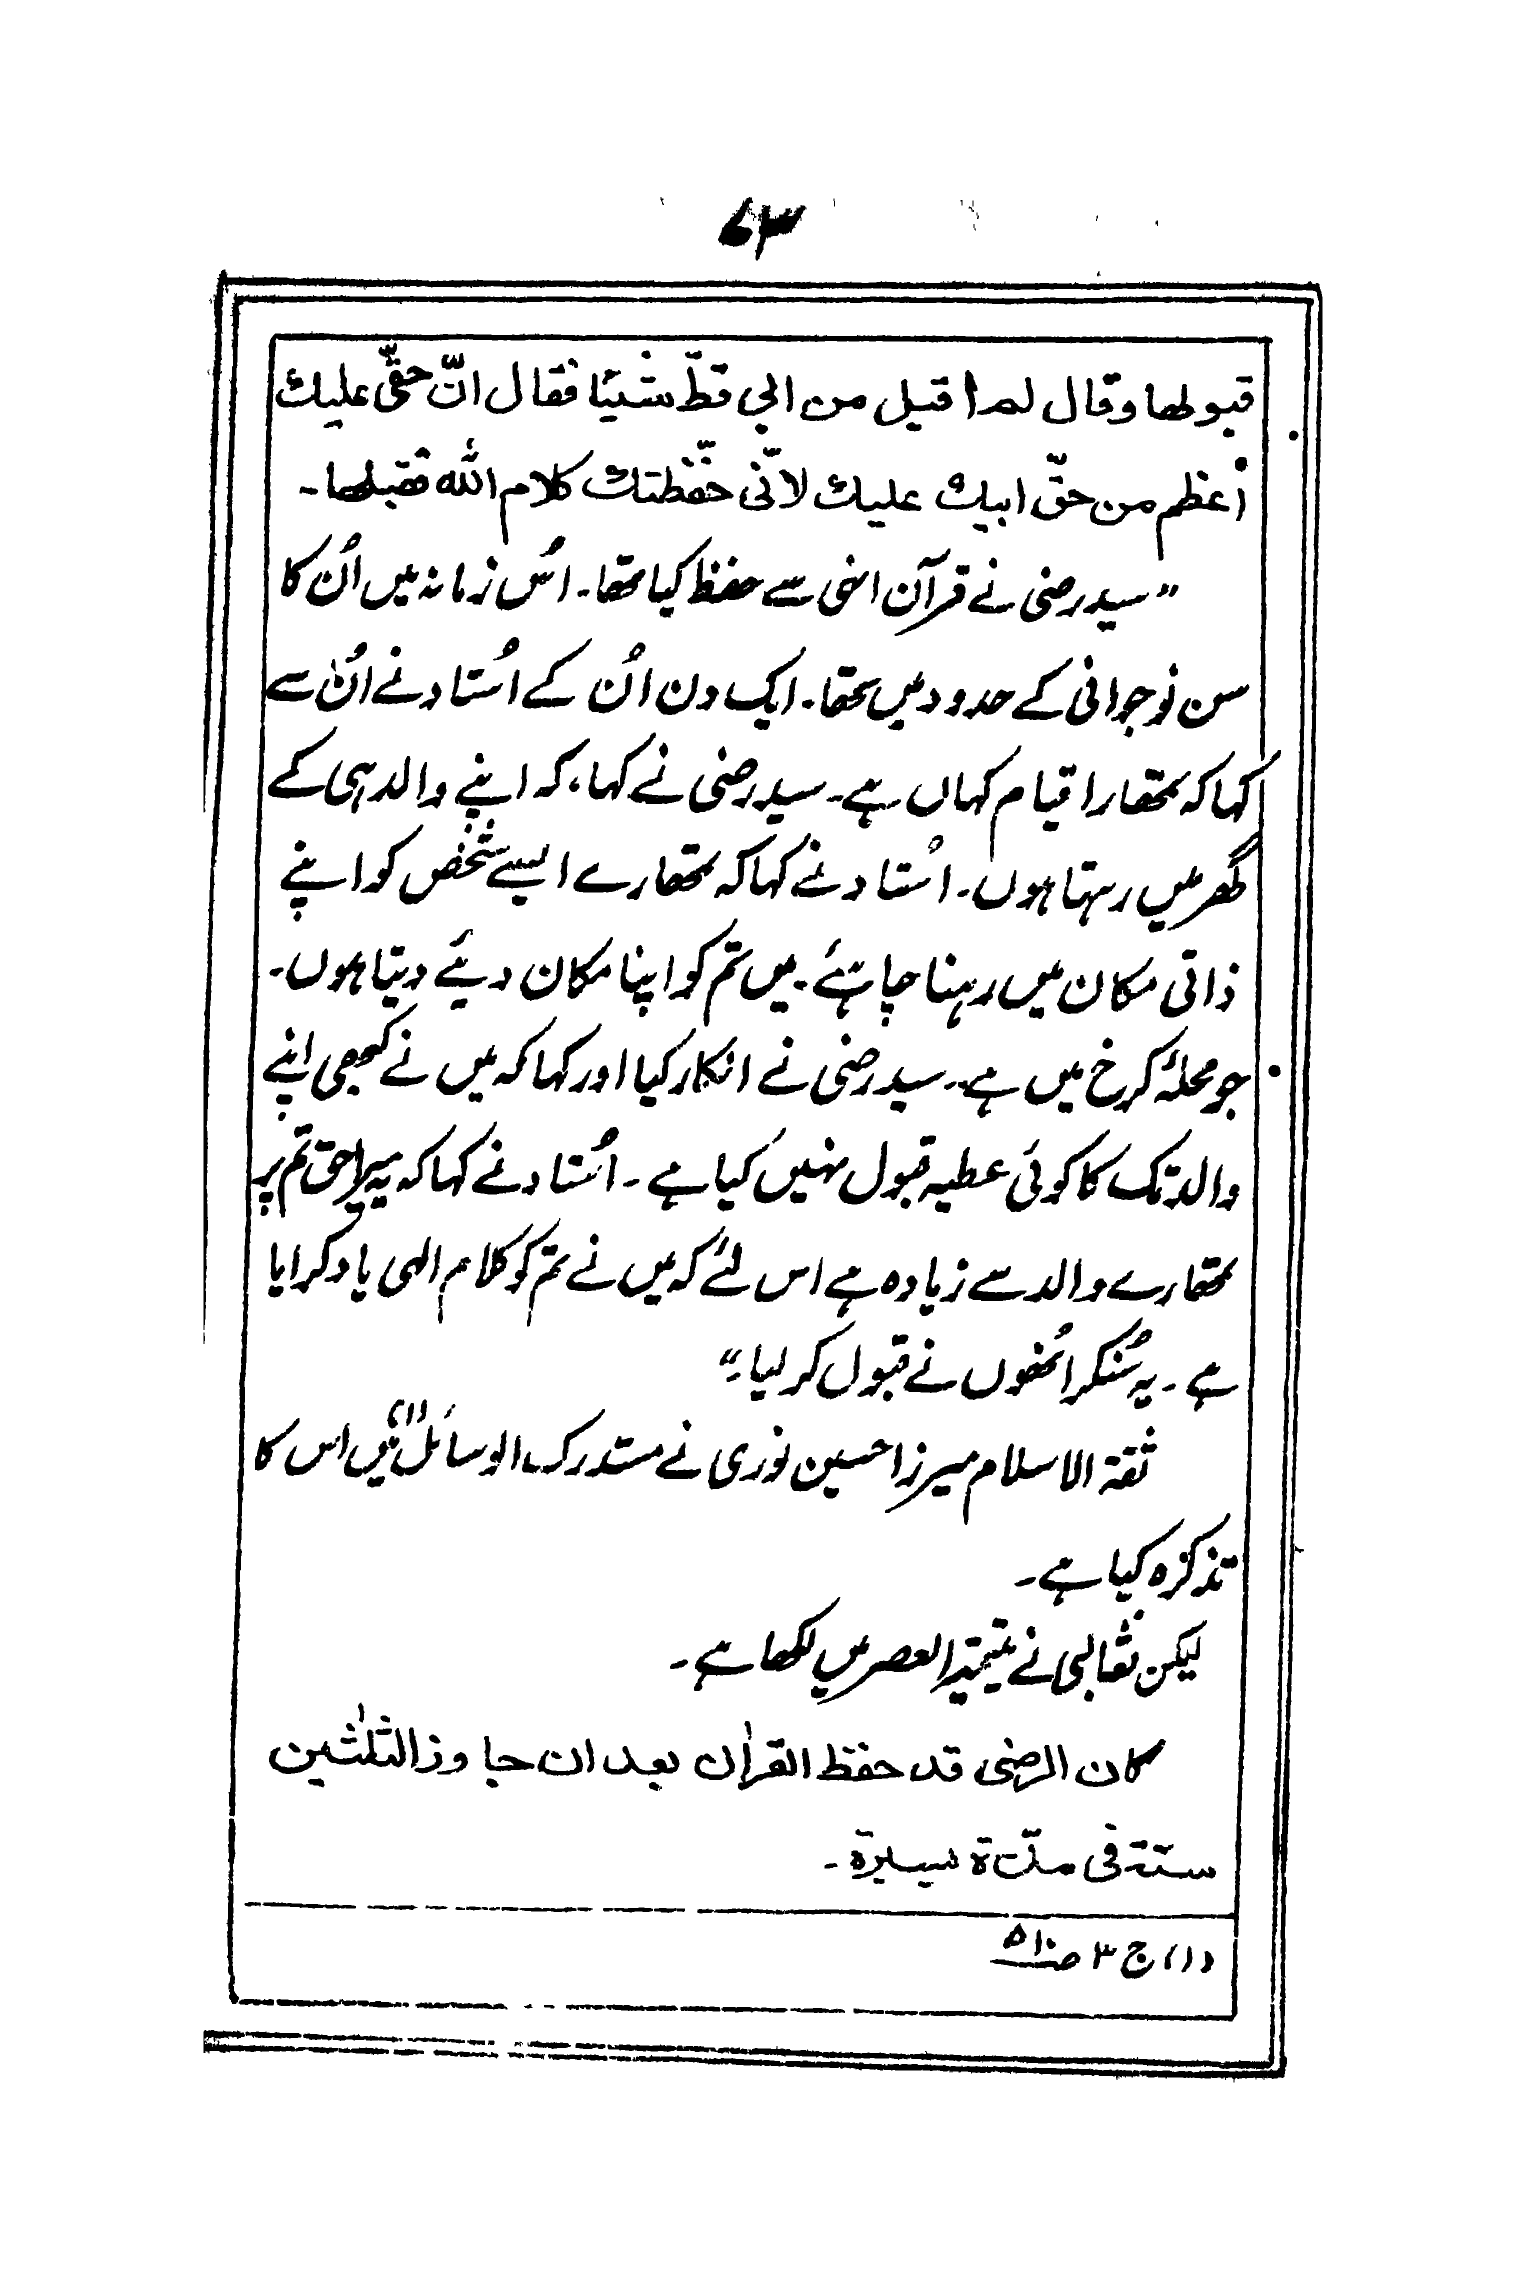 ۶۳
قبولھا وقال لم اقبل من ابی قطّ شیئا فقال انّ حقّی علیك
أعظم من حقّ ابیك علیك لانّی حفّظتك كلام اللّٰہ فقبلھا۔
”سید رضی نے قرآن انہی سے حفظ کیا تھا۔ اُس زمانہ میں اُن کا
سن نوجوانی کے حدود میں تھا۔ ایک دن اُن کے اُستاد نے اُن سے
کہا کہ تمھارا قیام کہاں ہے۔ سید رضی نے کہا، کہ اپنے والد ہی کے
گھر میں رہتا ہوں۔ اُستاد نے کہا کہ تمھارے ایسے شخص کو اپنے
ذاتی مکان میں رہنا چاہئے۔ میں تم کو اپنا مکان دیئے دیتا ہوں۔
جو محلۂ کرخ میں ہے۔ سید رضی نے انکار کیا اور کہا کہ میں نے کبھی اپنے
والد تک کا کوئی عطیہ قبول نہیں کیا ہے۔ اُستاد نے کہا کہ یہ میرا حق تم پر
تمھارے والد سے زیادہ ہے اس لئے کہ میں نے تم کو کلام الٰہی یاد کرایا
ہے۔ یہ سُنکر اُنھوں نے قبول کر لیا۔“
ثقۃ الاسلام میرزا حسین نوری نے مستدرک الوسائل(۱) میں اس کا
تذکرہ کیا ہے۔
لیکن ثعالبی نے یتیمۃ العصر میں لکھا ہے۔
كان الرضی قد حفظ القراٰن بعد ان جاوز الثلٰثین
سنۃ فی مدّۃ یسیرۃ۔
(۱) ج ۳ صـ۵۱۰